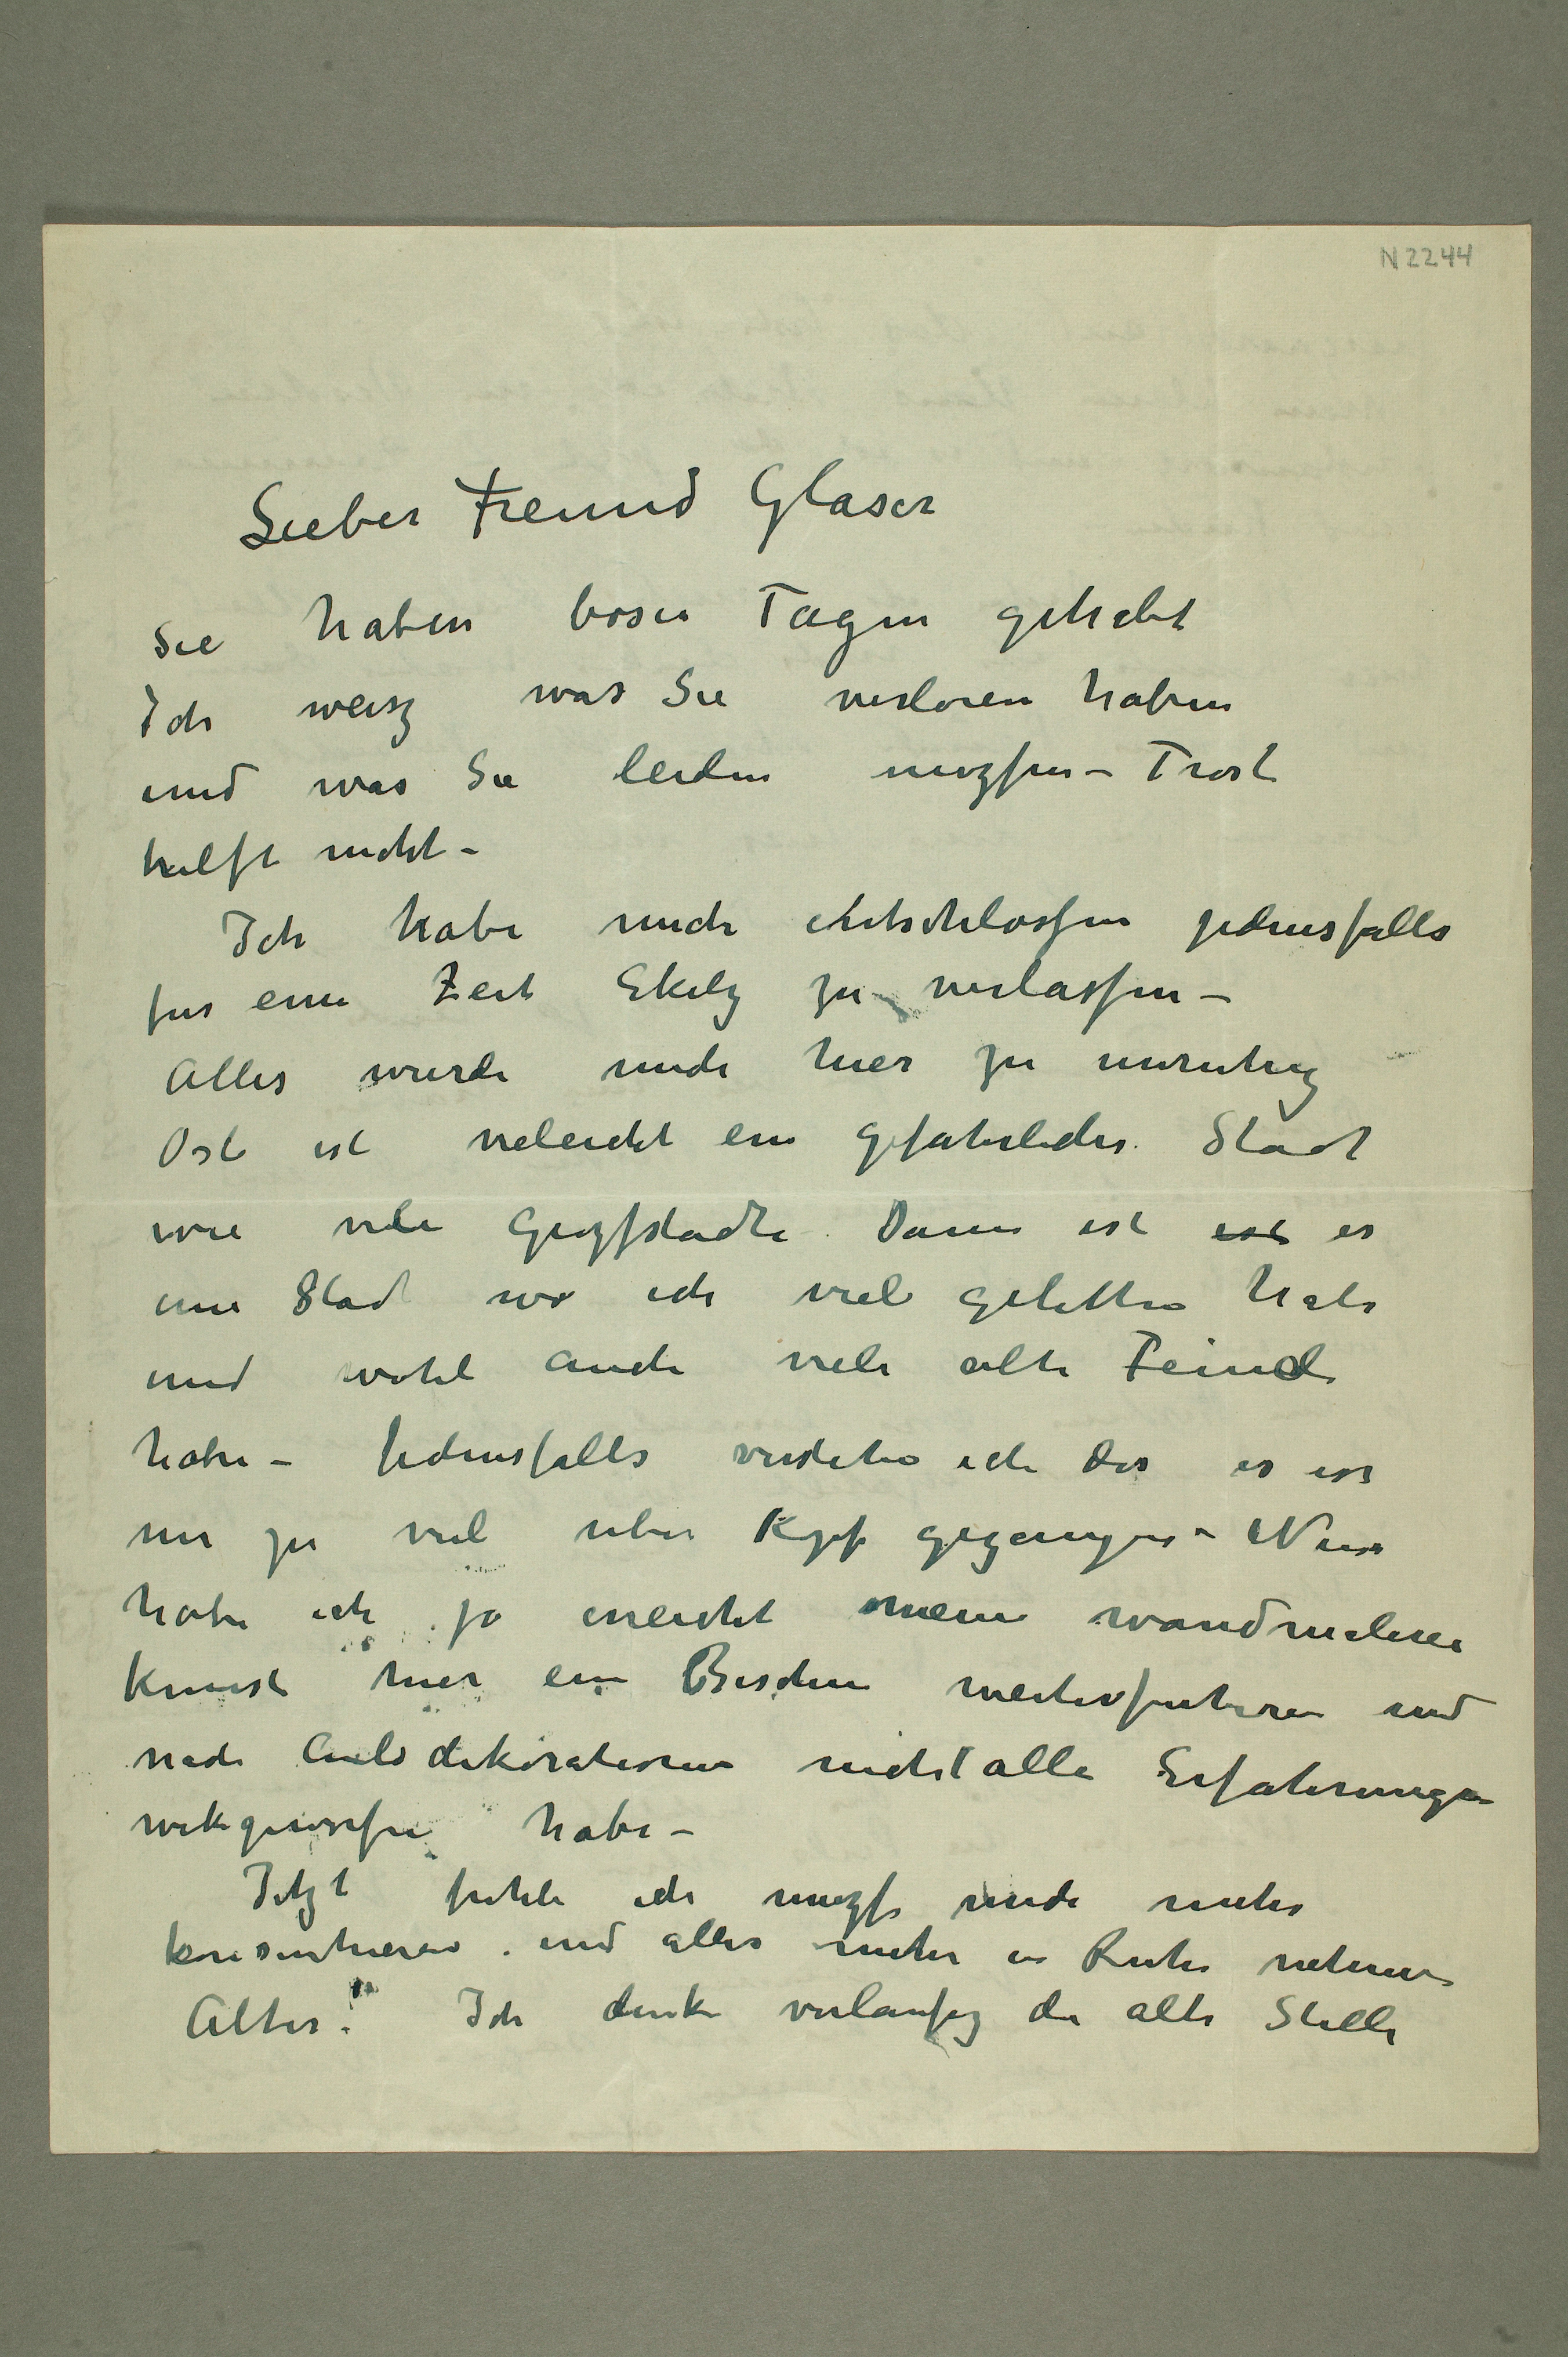 N 2244
Lieber Freund Glaser
Sie haben böser Tagen gehabt
Ich weisz was Sie verloren haben
und was Sie leiden muszsen – Trost
hilft nicht –
Ich habe mich entschlossen jedensfalls
fur eine Zeit Ekely zu verlassen –
Alles wurde mich hier zu unruhig
Oslo ist vieleicht ein gefahrliches Stadt
wie viele Groszstadte. Dann ist ist es
eine Stadt wo ich viel gelitten habe
und wohl auch viele alte Feinde
habe – Jedensfalls verstehe ich das es ist
mir zu viel uber Kopf gegangen – Nun
habe ich ja erreicht meine wandmalerei
Kunst hier ein Bischen weiterfuhren und
nach Auladekorationen nicht alle Erfahrungen
wekgeworfen habe –
Jetzt fuhle ich muszs mich mehr
konsentrieren. und alles mehr in Ruhe nehmen
Alter! Ich denke vorlaufig die alte Stelle